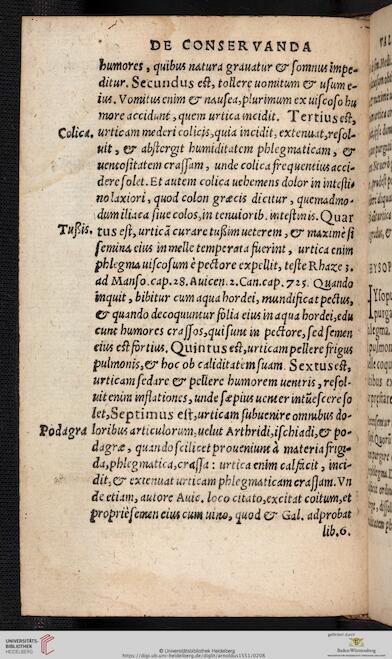 DE CONSERVANDA
humores, quibus natura grauatur & somnus impe-
ditur. Secundus est, tollere uomitum & usum e-
ius. Vomitus enim & nausea, plurimum ex uiscoso hu
more accidunt, quem urtica incidit. Tertius est,
Colica. urticam mederi colicis, quia incidit, extenuat, resol-
uit, & abstergit humiditatem phlegmaticam, &
uentositatem crassam, unde colica frequentius acci-
dere solet. Et autem colica uehemens dolor in intesti-
no laxiori, quod colon græcis dicitur, quemadmo-
dum iliaca siue colos, in tenuiorib. intestinis. Quar
Tussis. tus est, urtica curare tussim ueterem, & maximè si
semina eius in melle temperata fuerint, urtica enim
phlegma uiscosum è pectore expellit, teste Rhaze 3.
ad Manso. cap. 28. Auicen. 2. Can. cap. 725. Quando
inquit, bibitur cum aqua hordei, mundificat pectus,
& quando decoquuntur folia eius in aqua hordei, edu
cunt humores crassos, qui sunt in pectore, sed semen
eius est fortius. Quintus est, urticam pellere frigus
pulmonis, & hoc ob caliditatem suam. Sextus est,
urticam sedare & pellere humorem uentris, resol-
uit enim inflationes, unde sæpius uenter intūescere so
let, Septimus est, urticam subuenire omnibus do-
Podagra loribus articulorum, uelut Arthridi, ischiadi, & po-
dagræ, quando scilicet proueniunt à materia frigi-
da, phlegmatica, crassa: urtica enim calfacit, inci-
dit, & extenuat urticam phlegmaticam crassam. Vn
de etiam, autore Auic. loco citato, excitat coitum, et
propriè semen eius cum uino, quod & Gal. adprobat
lib. 6.
UNIVERSITÄTS-
BIBLIOTHEK
HEIDELBERG
© Universitätsbibliothek Heidelberg
https://digi.ub.uni-heidelberg.de/diglit/arnoldus1551/0208
gefördert durch
Baden-Württemberg